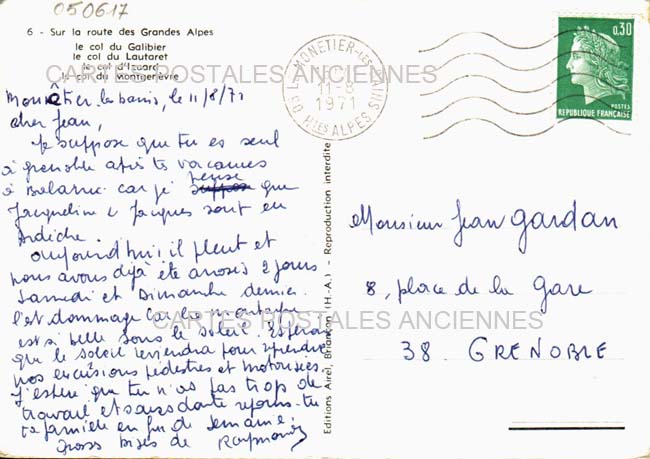 050617
6 - Sur la route des Grandes Alpes
le col du Galibier
le col du Lautaret
le col d'Izoard
le col du Montgenèvre
CARTES POSTALES ANCIENNES
LE MONETIER-LES-BAINS
11-8
1971
Htes ALPES
0,30
POSTES
REPUBLIQUE FRANÇAISE
Monêtier les bains, le 11/8/71
Cher Jean,
Je suppose que tu es seul
à grenoble après tes vacances
à Balaruc car je pense que
Jacqueline & Jacques sont en
Ardèche.
aujourd'hui, il pleut et
nous avons déjà été arrosés 2 jours
Samedi et Dimanche dernier.
C'est dommage car la montagne
est si belle sous le soleil. Espérons
que le soleil reviendra pour reprendre
nos excursions pédestres et motorisées.
J'espère que tu n'as pas trop de
travail et sans doute rejoins-tu
ta famille en fin de semaine.
Gross bises de Raymonde
Editions Airel, Briançon (H.-A.) - Reproduction interdite
Monsieur Jean Gardan
8, place de la Gare
CARTES POSTALES ANCIENNES
38. GRENOBLE